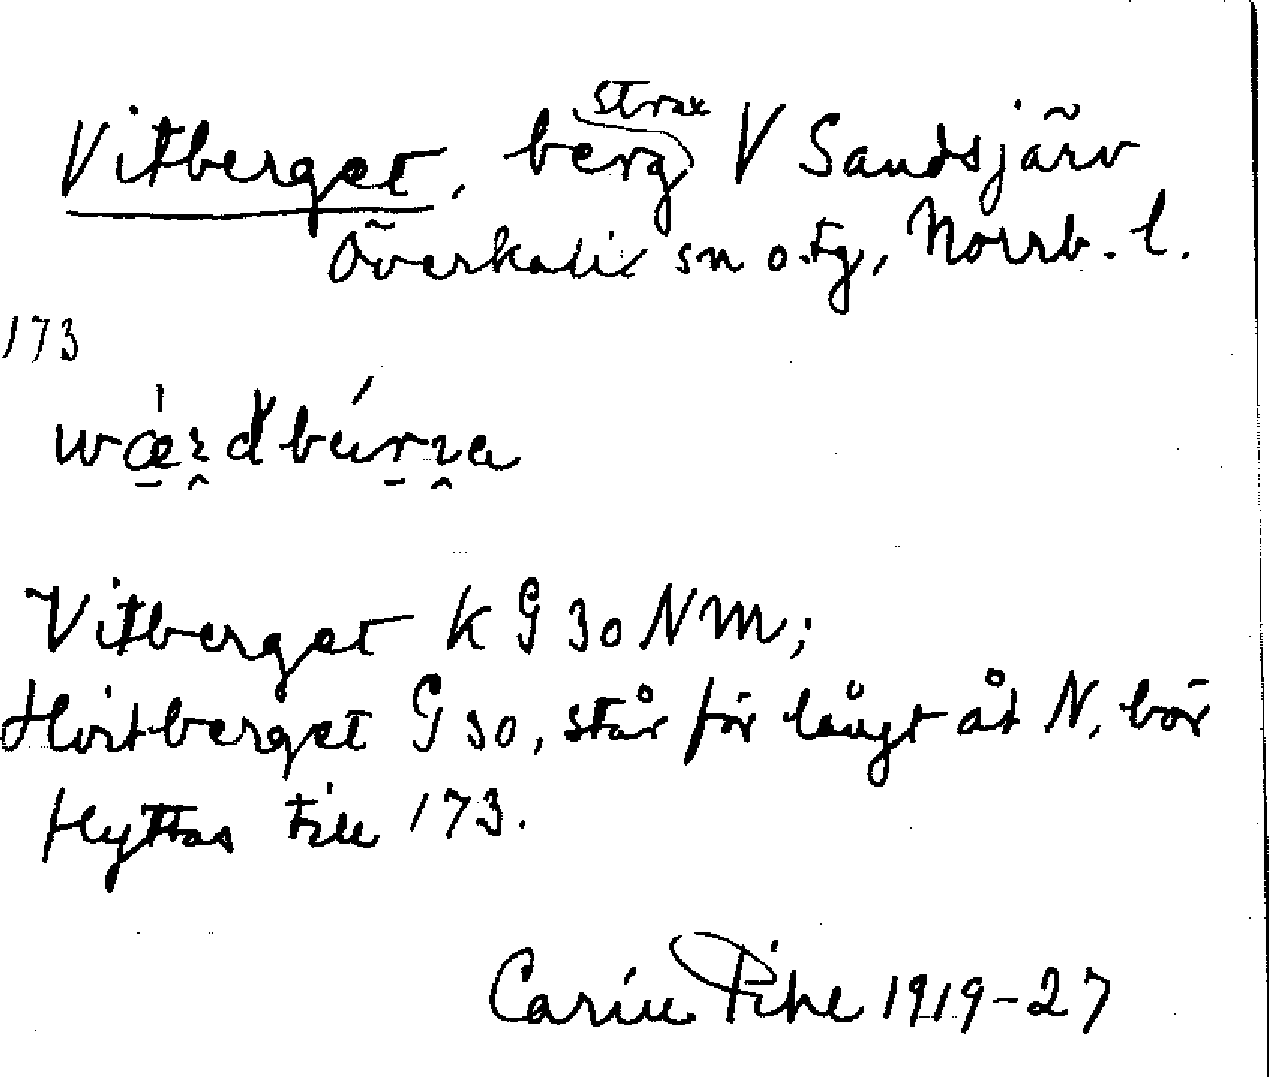 Vitberget, berg strax V Sandsjärv
Överkalix sn o. tg, Norrb. l.
173
Vitberget K G 30 NM;
Hvitberget G 30, står för långt åt N, bör
flyttas till 173.
Carin Pihl 1919-27